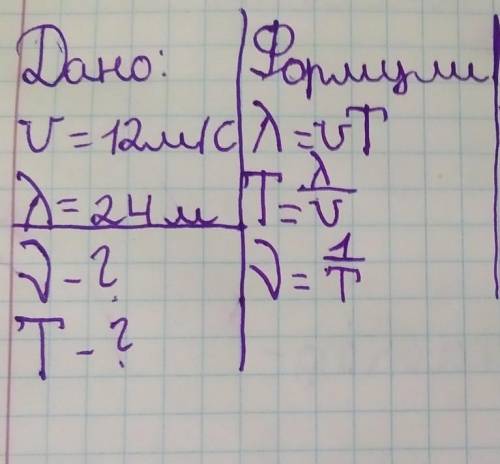 Дано:
v = 12м/с
λ = 24м
ν - ?
T - ?
Формули
λ = vT
T = λ/v
ν = 1/T